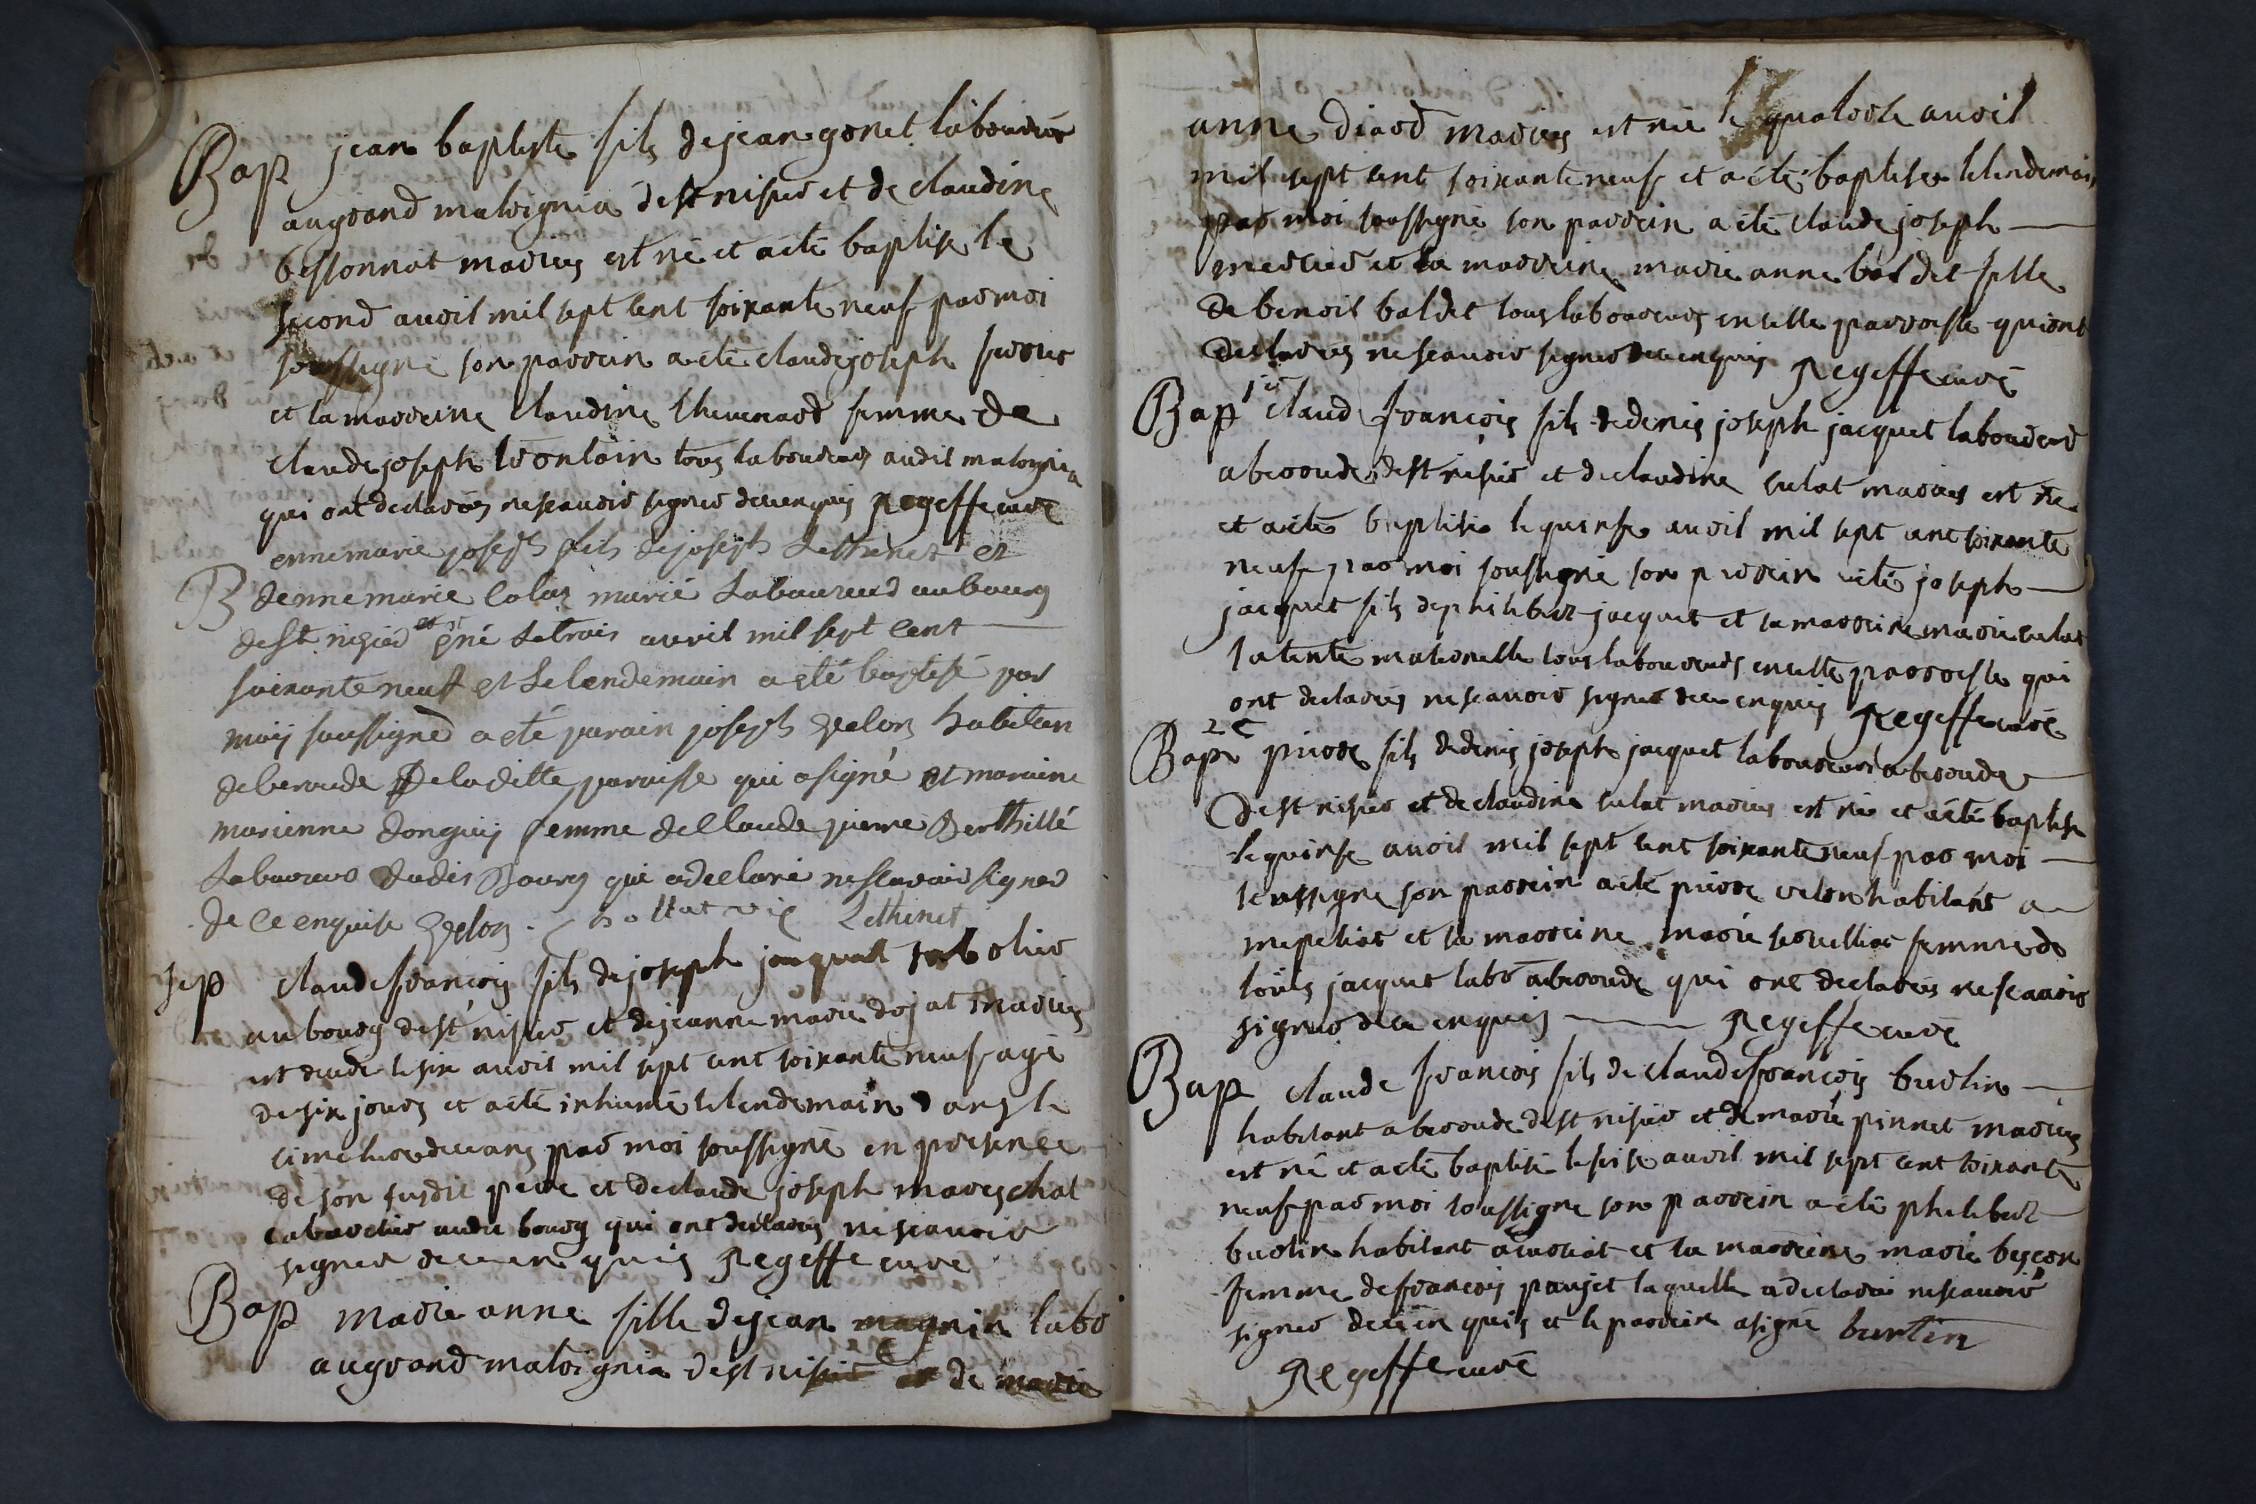 Bap jean baptiste fils de jean gonet laboureur
augrand maloignia de st nisier et de claudine
bessonnat mariés est né et a été baptise le
second avril mil sept cent soixante neuf par moi
soussigné son parrein a été claude joseph
et la marreine claudine thevenard femme de
claude joseph tous laboureurs audit maloignia
qui ont declarées ne scavoir signer de ce enquis Regeffe curé
ennemarie joseph fils de joseph Lethenet et
B dennemarie Colas marié Laboureurd au bourg
de st nisier et est né Le trois avril mil sept cent
soixante neuf et Le lendemain a eté baptisé par
moy soussigned a eté parain joseph velon habitan
de beroude De la ditte paroisse qui a signé et maraine
marienne donguy femme de Claude pierre Berthillé
Laboureur dudit Bourg qui a declaré ne scavoir signer
de ce enquise velon Lethenet
Sep claude francois fils de joseph
au bourg de st nisier et de jeanne marie dojat mariés
est decede le six avril mil sept cent soixante neuf agé
de six jours et a été inhumé le lendemain dans le
cimetiere de ceans par moi soussigné en presence
de son susdit pere et de claude joseph mareschal
laboureur audit bourg qui ont declarés ne scavoir
signer de ce enquis Regeffe curé
Bap marie anne fille de jean magnin labo
augrand maloignia de st nisier et de marie
anne mariés est née le quatorze avril
mil sept cent soixante neuf et a été baptisée le lendemain
par moi soussigné son parrein a été claude joseph
mercier et la marreine marie anne baldet fille
de benoit baldet tous laboureurs en cette parroisse qui ont
declarées ne scavoir signer de ce enquis Regeffe curé
Bap 1er claud françois fils de denis joseph jacquet laboureur
a beroude de st nisier et de claudine culat mariés est né
et a été baptisé le quinse avril mil sept cent soixante
neuf par moi soussigné son parrein a été joseph
jacquet fils de philibert jacquet et sa marreine marie culat
sa tente maternelle tous laboureurs en cette parroisse qui
ont declarés ne scavoir signer de ce enquis Regeffe curé
2e
Bap pierre fils de denis joseph jacquet laboureur a beroude
de st nisier et de claudine culat mariés est né et a été baptisé
le quinse avril mil sept cent soixante neuf par moi
soussigné son parrein a été pierre velon habitant a
mepeliat et sa marreine marie femme de
loüis jacquet labo a beroude qui ont declarés ne scavoir
signer de ce enquis Regeffe curé
Bap claude francois fils de claude françois burtin
habitant a beroude de st nisier et de marie pinnet mariés
est né et a été baptisé le seise avril mil sept cent soixante
neuf par moi soussigné son parrein a été philibert
burtin habitant a et la marreine marie bescon
femme de francois paujet laquelle a declaré ne scavoir
signer de ce en quis et le parrein a signé burtin
Regeffe curé